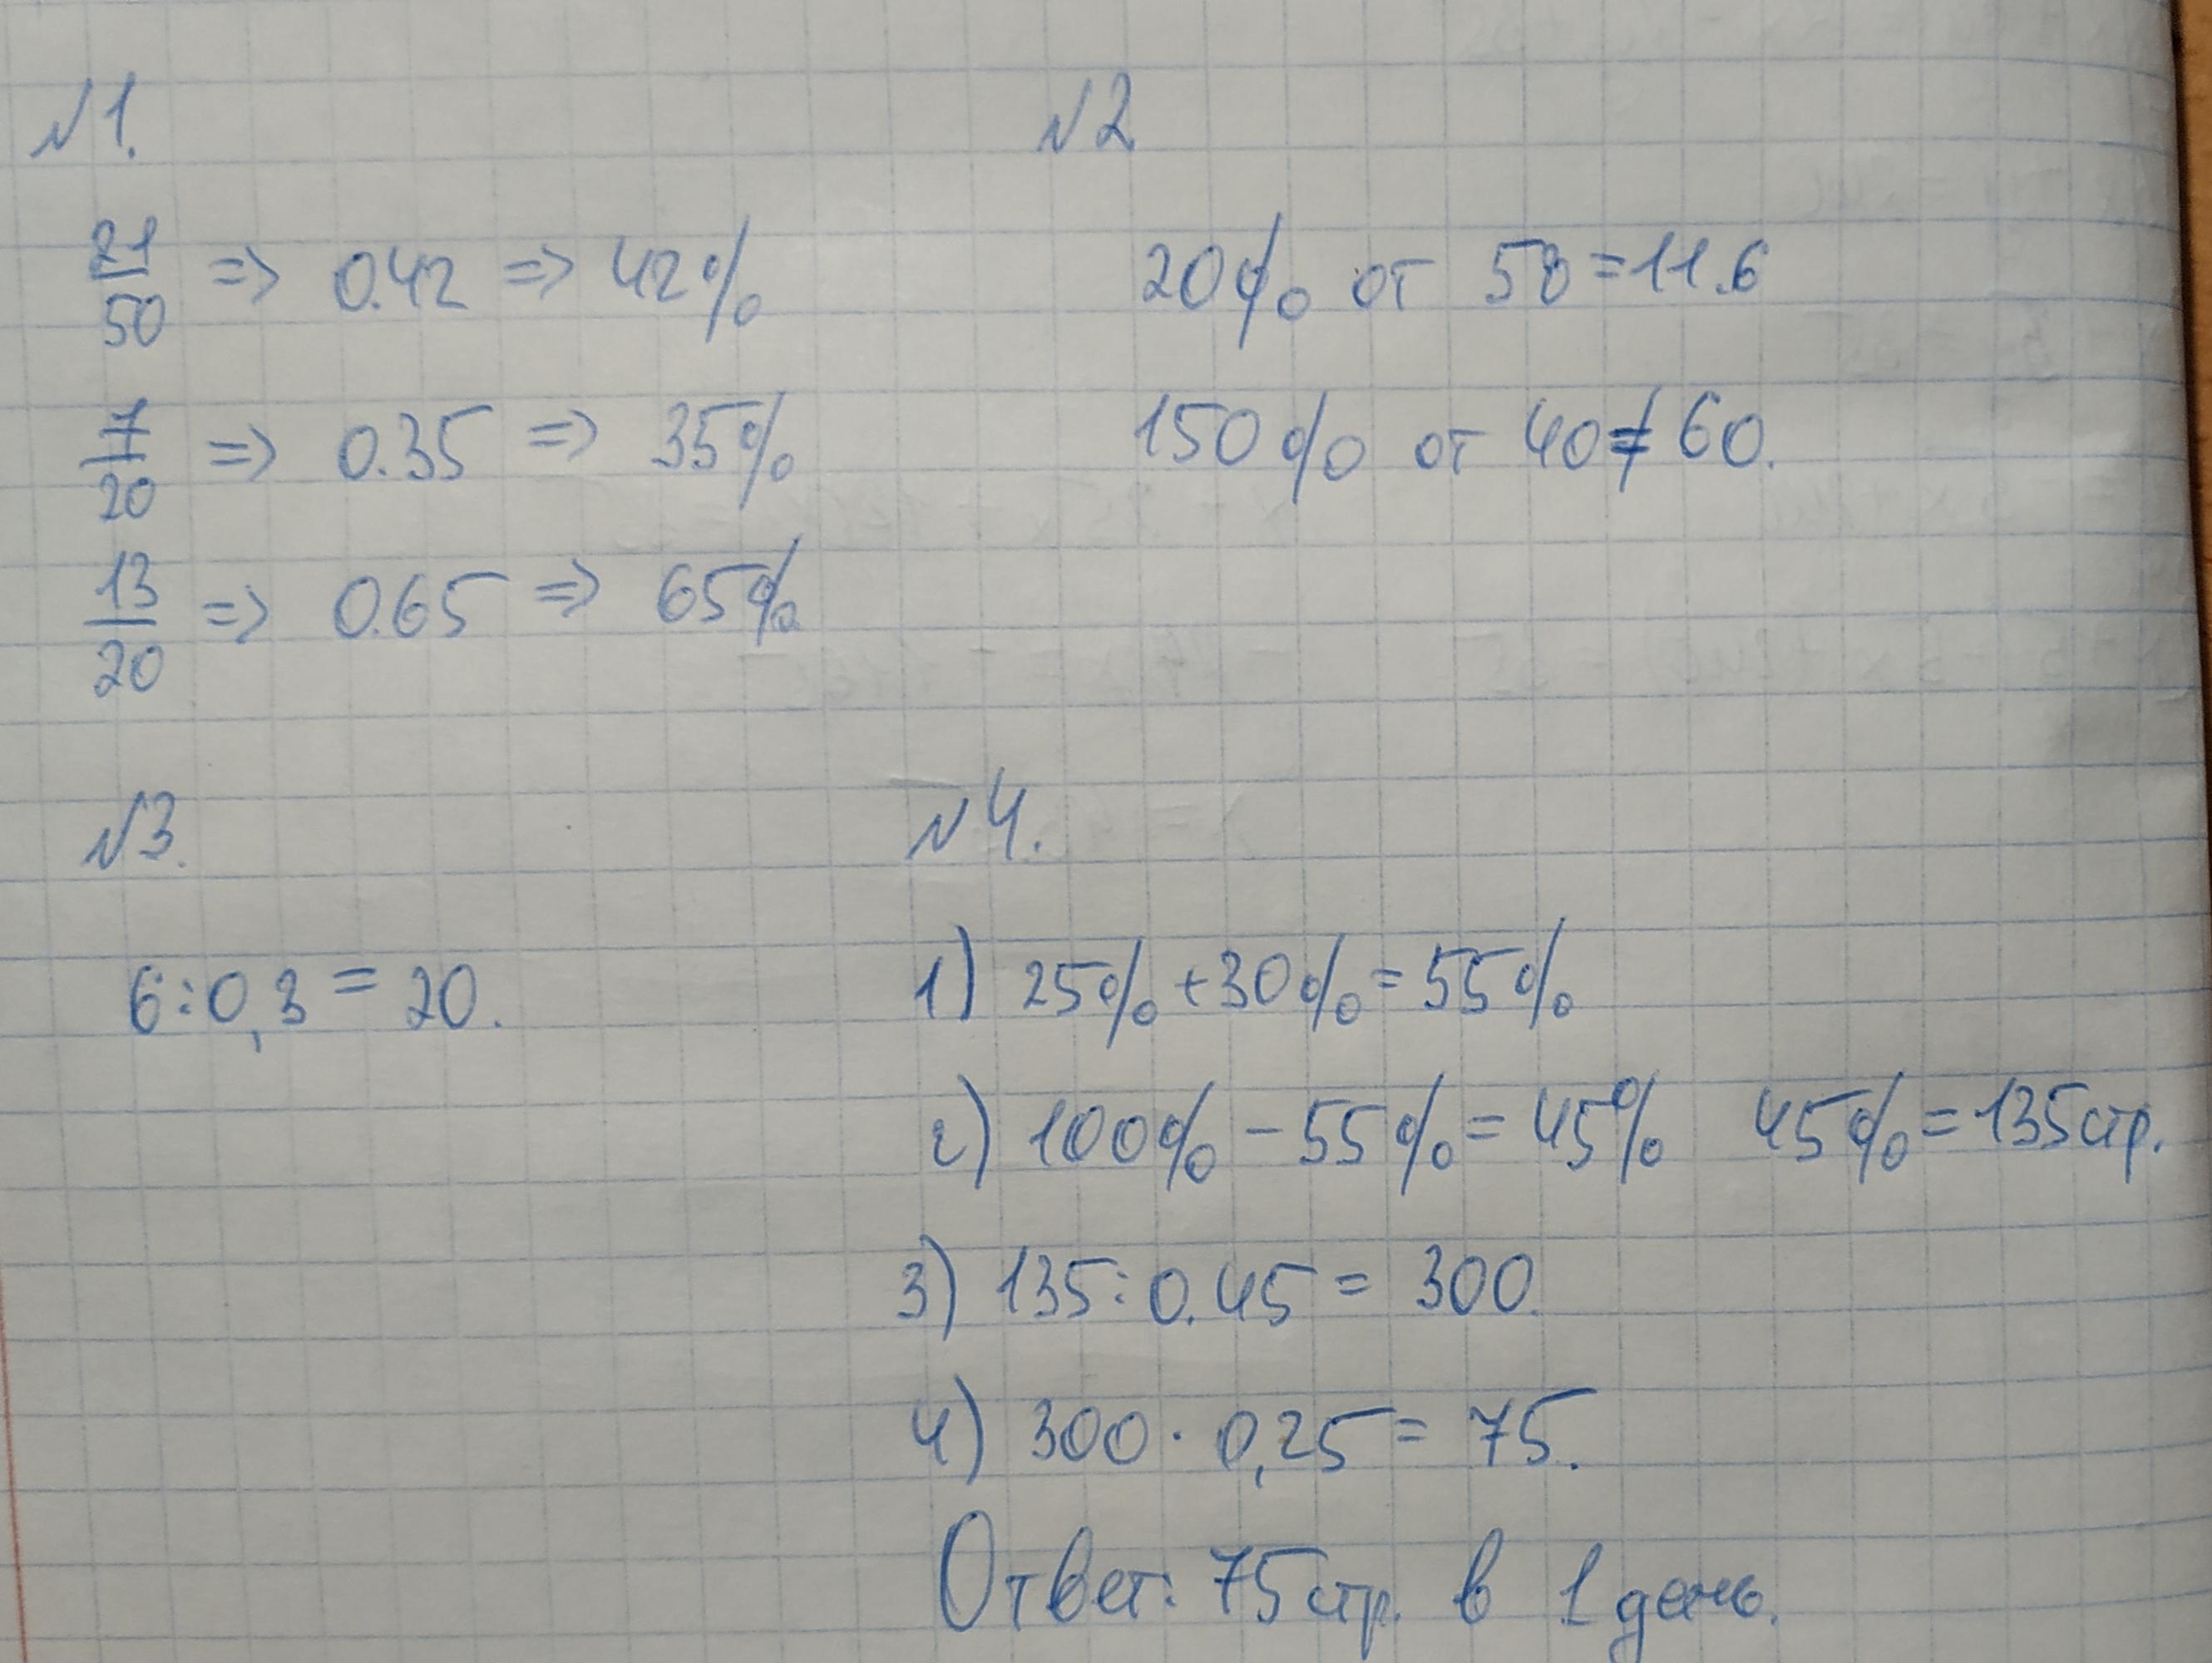 №1.
21/50 => 0.42 => 42%
7/20 => 0.35 => 35%
13/20 => 0.65 => 65%
№2
20% от 58=11.6
150% от 40=60.
№3.
6:0,3=20.
№4.
1) 25%+30%=55%
2) 100%-55%=45% 45%=135стр.
3) 135:0.45=300.
4) 300·0,25=75.
Ответ: 75стр. в 1 день.